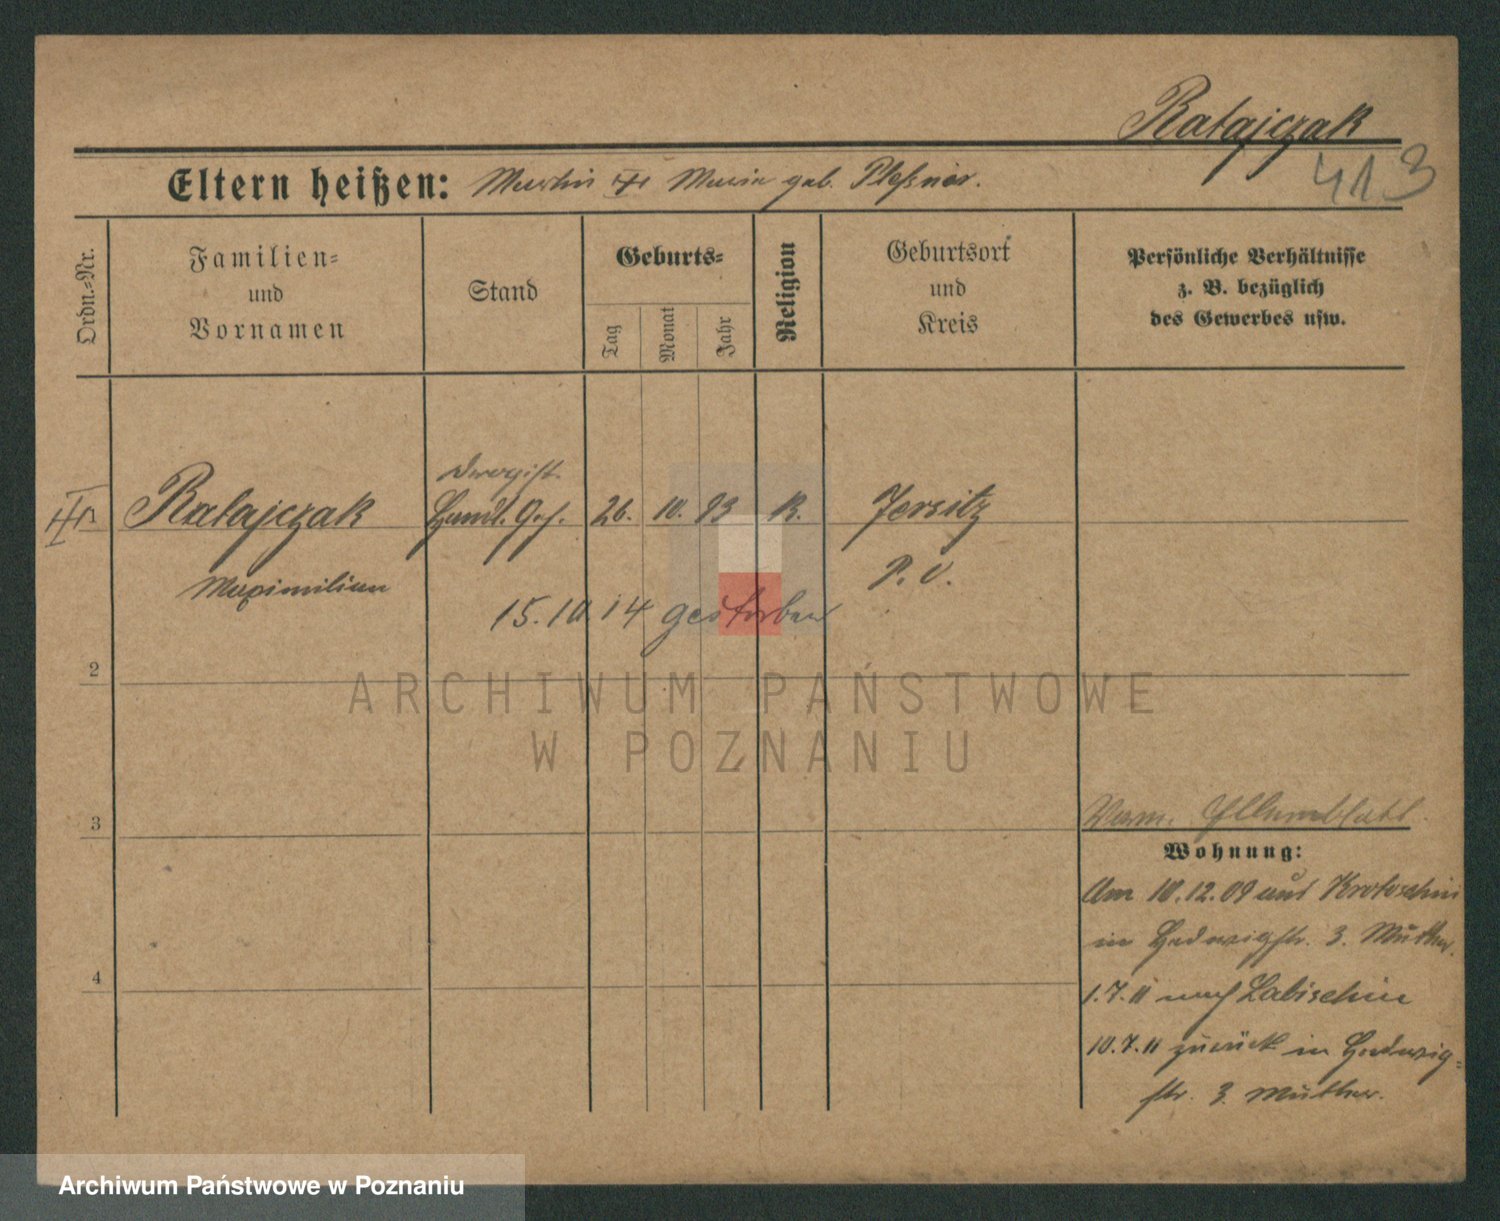 Ratajczak
413
Eltern heißen: Martin Maria geb. Pleßner.
Ordn.-Nr.
Familien-
und
Vornamen
Stand
Geburts-
Tag
Monat
Jahr
Religion
Geburtsort
und
Kreis
Persönliche Verhältnisse
z. B. bezüglich
des Gewerbes usw.
Drogist.
Ratajczak Handl. Geh. 26. 10. 93 K. Jersitz
Maximilian P. O.
15.10.14 gestorben
2
ARCHIWUM PAŃSTWOWE
W POZNANIU
3
Wohnung:
Am 10.12.09 aus Krotoschin
in Hedwigstr. 3. Mutter.
4
1.7.11 nach Labischin
10.7.11 zurück in Hedwig-
str. 3. Mutter.
Archiwum Państwowe w Poznaniu